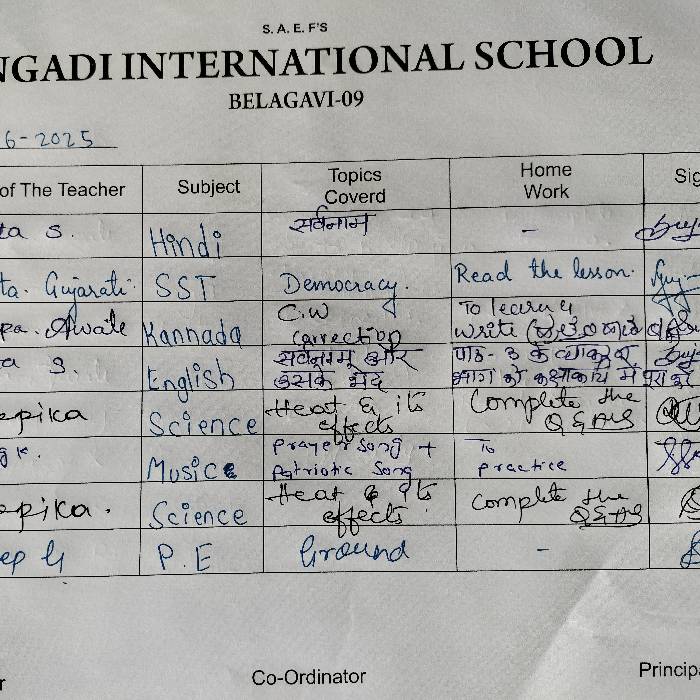 S. A. E. F'S
NGADI INTERNATIONAL SCHOOL
BELAGAVI-09
6-2025
of The Teacher Subject Topics Coverd Home Work Sig
ta S. Hindi सर्वनाम -
ta. Gujarati. SST Democracy. Read the lesson.
pa. Awale Kannada C.W To learn &
correction write
a S. English सर्वनाम और पाठ- 3 के व्याकरण
उसके भेद भाग को कक्षाकार्य में पूरा करे
epika Science Heat & its Complete the
effects Q&A's
g k. Music Prayer song + To
Patriotic Song practice
epika. Science Heat & its Complete the
effects Q&A's
ep G P.E Ground -
r Co-Ordinator Principa